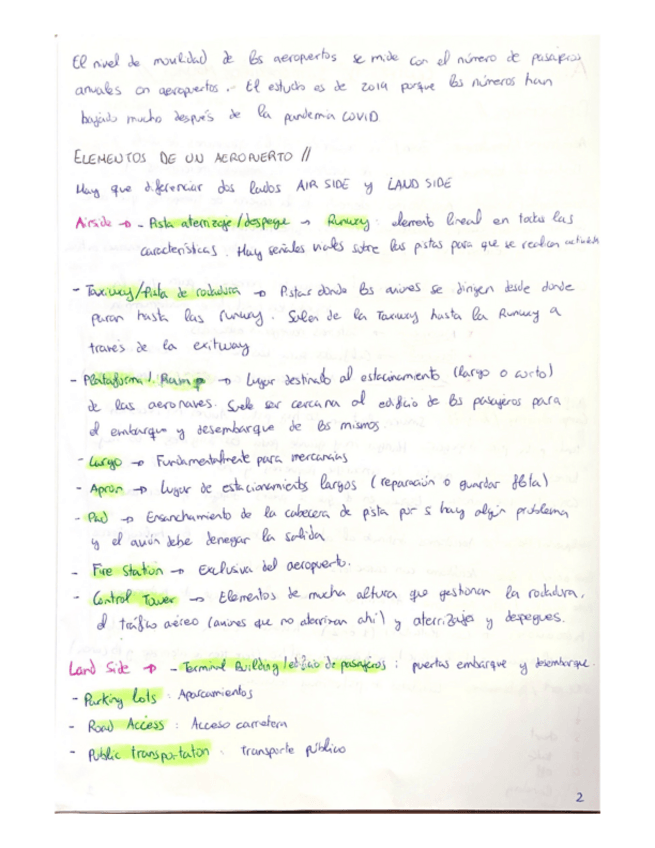 El nivel de movilidad de los aeropuertos se mide con el número de pasajeros
anuales en aeropuertos. El estudio es de 2019 porque los números han
bajado mucho después de la pandemia COVID
ELEMENTOS DE UN AEROPUERTO //
Hay que diferenciar dos lados AIR SIDE y LAND SIDE
Airside → - Pista aterrizaje/despegue → Runway: elemento lineal en todas las
características. Hay señales viales sobre las pistas para que se realicen
- Taxiway/Pista de rodadura → Pistas donde los aviones se dirigen desde donde
paran hasta las runway. Salen de la Taxiway hasta la Runway a
través de la exitway
- Plataforma/Ramp → Lugar destinado al estacionamiento (largo o corto)
de las aeronaves. Suele ser cercana al edificio de los pasajeros para
el embarque y desembarque de los mismos
- Cargo → Fundamentalmente para mercancías
- Apron → Lugar de estacionamientos largos (reparación o guardar flota)
- Pad → Ensanchamiento de la cabecera de pista por si hay algún problema
y el avión debe denegar la salida
- Fire Station → Exclusiva del aeropuerto.
- Control Tower → Elementos de mucha altura que gestionan la rodadura,
el tráfico aéreo (aviones que no aterrizan ahí) y aterrizajes y despegues.
Land Side → - Terminal Building/edificio de pasajeros: puertas embarque y desembarque.
- Parking lots: Aparcamientos
- Road Access: Acceso carretera
- Public transportation: transporte público
2